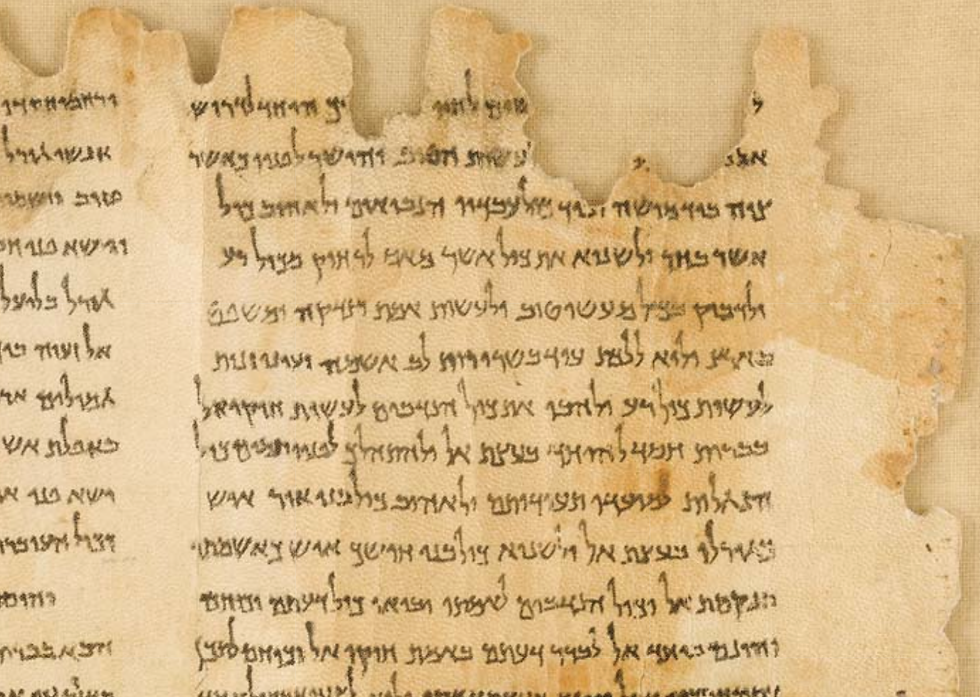 ל שים לחיו יחד לדרוש
אל לעשות הטוב והישר לפניו כאשר
צוה ביד מושה וביד כול עבדיו הנביאים ולאהוב כול
אשר בחר ולשנוא את כול אשר מאס לרחוק מכול רע
ולדבוק בכול מעשי טוב ולעשות אמת וצדקה ומשפט
בארצ ולוא ללכת עוד בשרירות לב אשמה ועיני זנות
לעשות כול רע ולהבי את כול הנדבים לעשות חוקי אל
בברית חסד להיחד בעצת אל ולהתהלכ לפניו תמים כול
הנגלות למועדי תעודותם ולאהוב כול בני אור איש
כגורלו בעצת אל ולשנוא כול בני חושכ איש כאשמתו
בנקמת אל וכול הנדבים לאמתו יביאו כול דעתם וכוחם
והונם ביחד אל לברר דעתם באמת חוקי אל וכוחם לתכן
ורחמי חסדו
אנשי גורל
טוב
וישא פני
גורל בליעל
אל זעוה
גמולים
באפלת אש
ישא פני
העוברים
הבא בברית